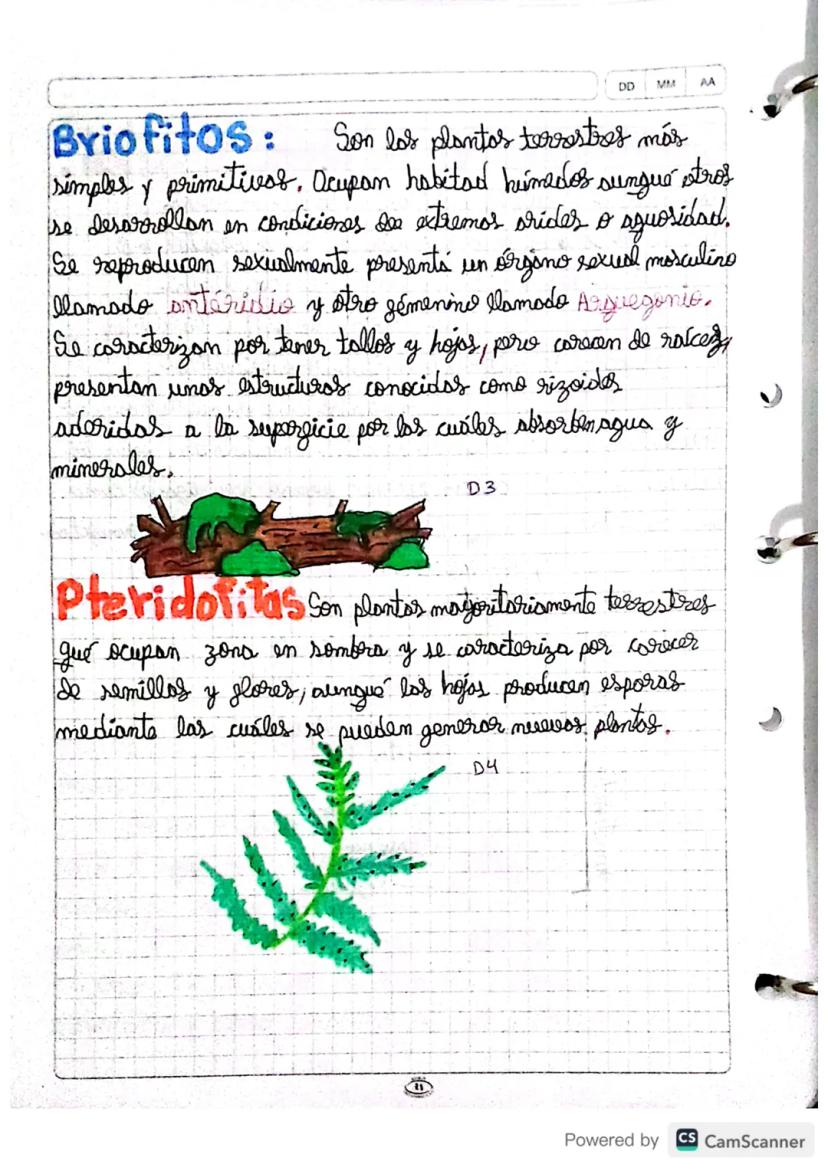 DD MM AA
Briofitos: Son las plantas terrestres más
simples y primitivas. Ocupan habitad húmedos aunqué otros
se desarrollan en condiciones de extremas arides o aguosidad.
Se reproducen sexualmente presentá un órgano sexual masculino
llamado antéridio y otro fémenino llamado Arquegonio.
Se caracterizan por tener tallos y hojas, pero carecen de raíces,
presentan unas estructuras conocidas como rizoides
aderidas a la superficie por las cuáles absorben agua y
minerales.
D3
Pteridofitas Son plantas mayoritariamente terrestres
qué ocupan zona en sombra y se caracteriza por carecer
de semillas y flores, aunqué las hojas producen esporas
mediante las cuáles se pueden generar nuevas plantas.
D4
Powered by CS CamScanner